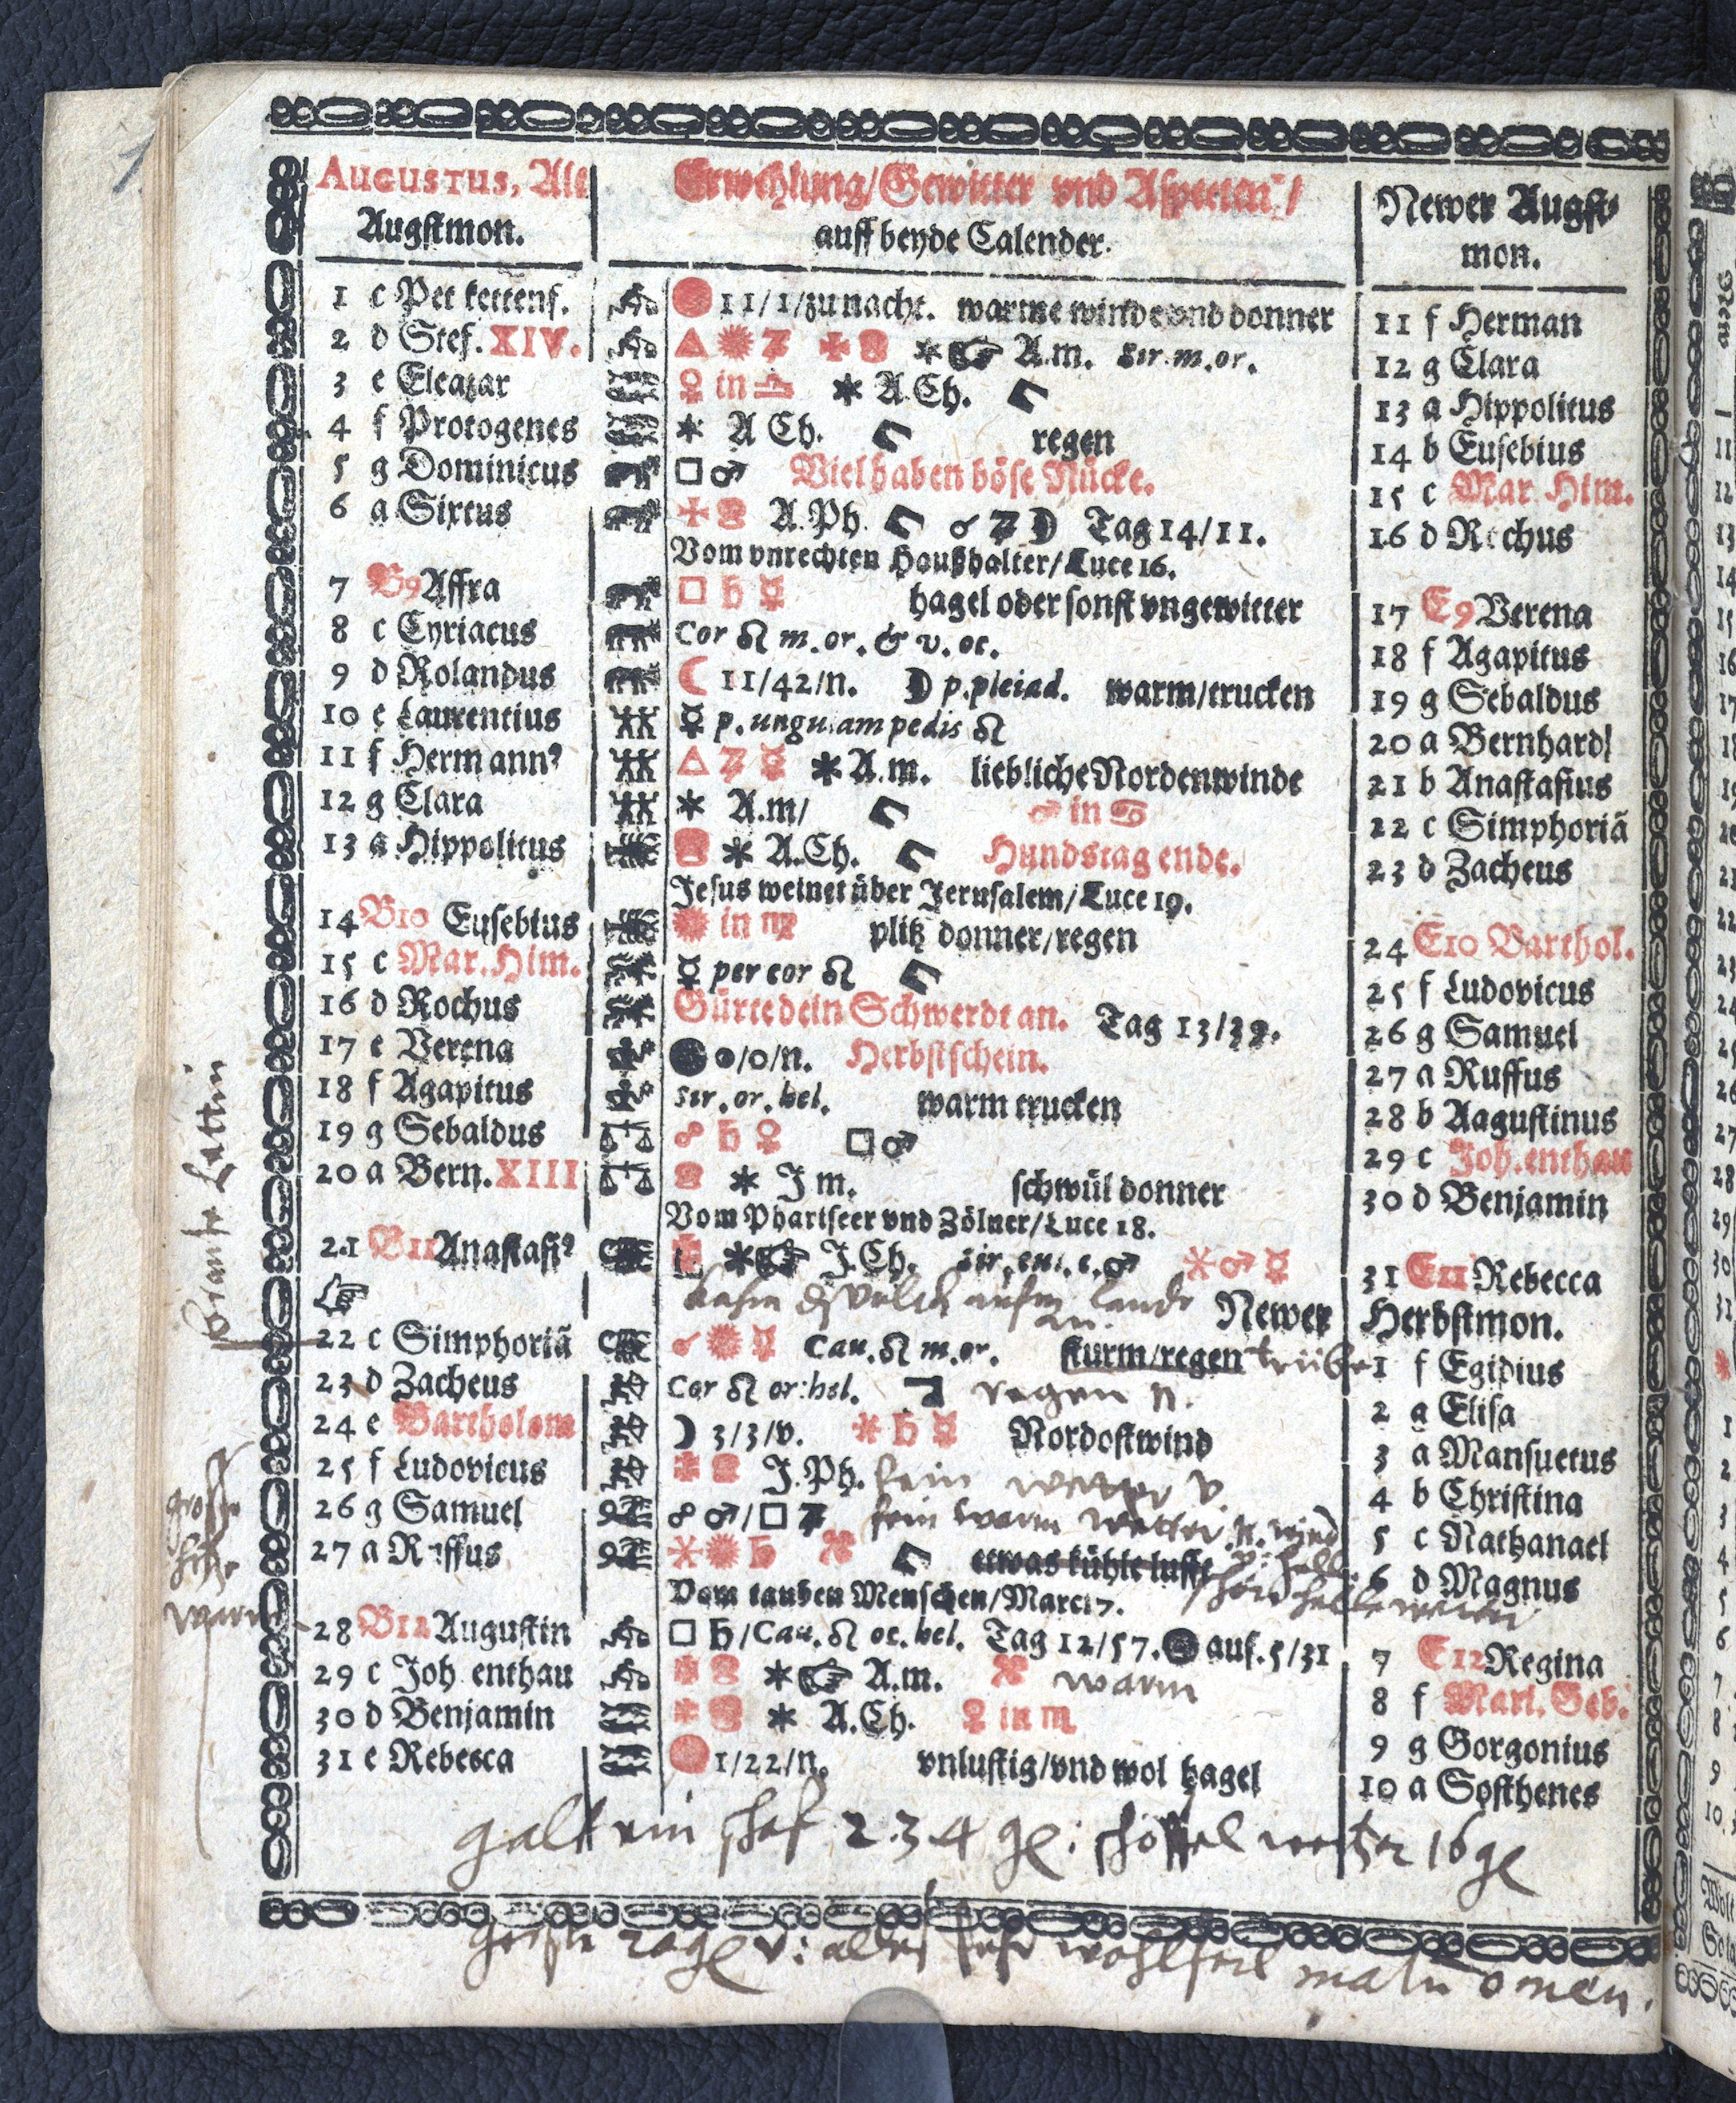 AUGUSTUS, Alt
Augstmon.
Erwehlung/Gewitter vnd Aspecten/
auff beyde Calender.
Newer Augst-
mon.
1 c Pet kettenf. 11/1/zu nacht. warme winde vnd donner 11 f Herman
2 d Stef. XIV. △ ✶ A.m. Sir.m.or. 12 g Clara
3 e Eleazar ♀ in ♎ ✶ A.Ch. 13 a Hippolitus
4 f Protogenes ✶ A Ch. regen 14 b Eusebius
5 g Dominicus □ ♂ Viel haben böse Nücke. 15 c Mar. Him.
6 a Sixtus A.Ph. ☌ ♃ ☽ Tag 14/11. 16 d Rochus
Vom vnrechten Haußhalter/Luce 16.
7 B9 Affra □ ♄ ☿ hagel oder sonst vngewitter 17 E9 Verena
8 c Cyriacus Cor ♌ m. or. & v. oc. 18 f Agapitus
9 d Rolandus ☾ 11/42/n. ☽ p.pleiad. warm/trucken 19 g Sebaldus
10 e Laurentius ☿ p. ungulam pedis ♌ 20 a Bernhard
11 f Hermann⁹ △ ♃ ☿ ✶ A.m. liebliche Nordenwinde 21 b Anastasius
12 g Clara ✶ A.m/ ♂ in ♋ 22 c Simphoriã
13 a Hippolitus ✶ A.Ch. Hundstag ende. 23 d Zacheus
Jesus weinet über Jerusalem/Luce 19.
14 B10 Eusebius in ♍ plitz donner/regen 24 E10 Barthol.
15 c Mar. Him. ☿ per cor ♌ 25 f Ludovicus
16 d Rochus Gürte dein Schwerdt an. Tag 13/39. 26 g Samuel
17 e Verena /0/n. Herbstschein. 27 a Ruffus
18 f Agapitus Sir. or. hel. warm trucken 28 b Aagustinus
19 g Sebaldus ☍ ♄ ♀ □ ♂ 29 c Joh. enthau
20 a Bern. XIII ✶ J m. schwül donner 30 d Benjamin
Vom Phariseer vnd Zölner/Luce 18.
21 B11 Anastasi⁹ ✶ J.Ch. ✶ ♂ ☿ 31 E11 Rebecca
lande Newer Herbstmon.
22 c Simphoriã ☌ ☿ Cau. ♌ m.or. sturm/regen trübe 1 f Egidius
23 d Zacheus Cor ♌ or: hel. regen n. 2 g Elisa
24 e Bartholom ☽ 3/3/v. ✶ ♄ ☿ Nordostwind
25 f Ludovicus J.Ph. fein wetter v. 3 a Mansuetus
26 g Samuel ☍ ♂/□ ♃ fein warm wetter n. wind 4 b Christina
27 a Ruffus ✶ ♄ etwas kühle lufft 5 c Nathanael
Vom tauben Menschen/Marci 7. schön helle wetter 6 d Magnus
28 B12 Augustin □ ♄/Cau. ♌ oc. hel. Tag 12/57. auf. 5/31 7 E12 Regina
29 c Joh enthau ✶ A.m. warm 8 f Mari. Geb.
30 d Benjamin ✶ A.Ch. ♀ in ♏ 9 g Gorgonius
31 e Rebecca 1/22/n. vnlustig/vnd wol hagel 10 a Sosthenes
grosse
hitze
warm
galt ein schaf 2.3.4 gl: schöffel weitzen 16 gl
gerste v: alles sehr wohlfeil malu omen.